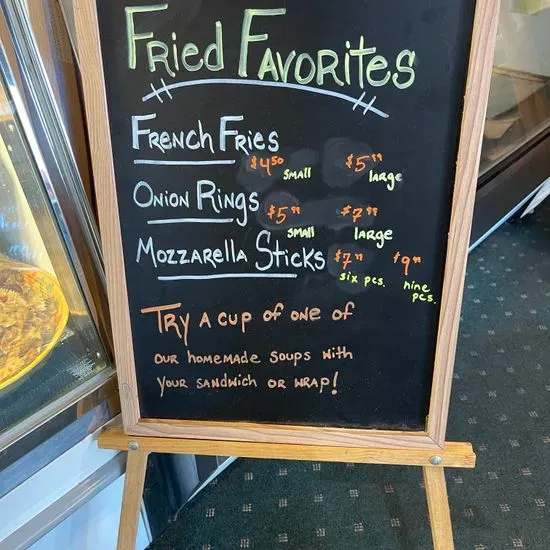 Fried Favorites
French Fries
$4.50 small $5.99 large
Onion Rings
$5.99 small $7.99 large
Mozzarella Sticks
$7.99 six pcs. $9.99 nine pcs.
Try a cup of one of
our homemade soups with
your sandwich or wrap!